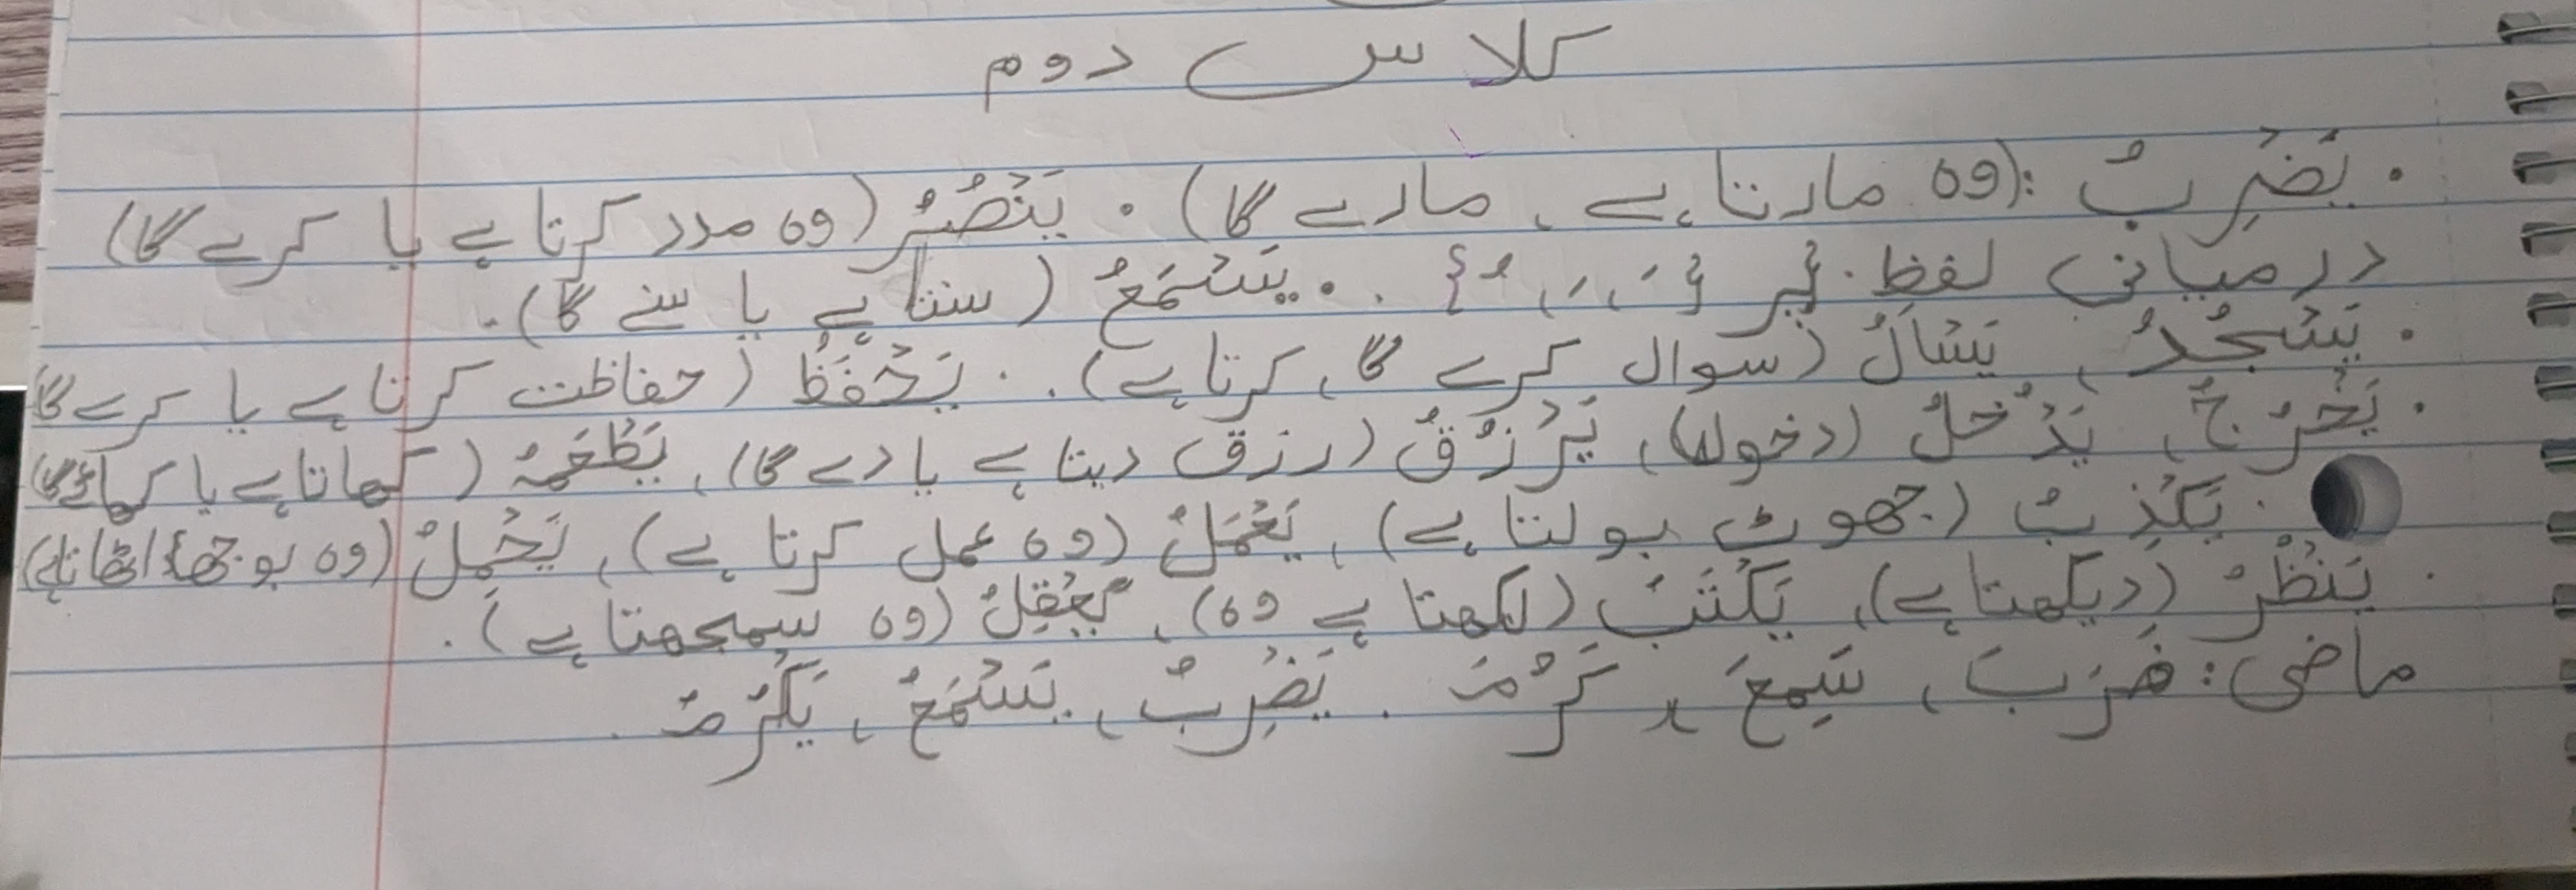 کلاس دوم
۔ یَضْرِبُ :(وہ مارتا ہے، مارے گا) ۔ یَنْصُرُ (وہ مدد کرتا ہے یا کرے گا)
درمیانی لفظ پر {َ ، ِ ، ُ} ۔ ۔ یَسْمَعُ (سنتا ہے یا سنے گا)۔
۔ یَسْجُدُ ، یَسْأَلُ (سوال کرے گا، کرتا ہے)۔ ۔ یَحْفَظُ (حفاظت کرتا ہے یا کرے گا
۔ یَخْرُجُ، یَدْخُلُ (دخولہ)، یَرْزُقُ (رزق دیتا ہے یا دے گا)، یَطْعَمُ (کھاتا ہے یا کھائے گا)
۔ یَکْذِبُ (جھوٹ بولتا ہے)، یَعْمَلُ (وہ عمل کرتا ہے)، یَحْمِلُ (وہ بوجھ اٹھاتا ہے)
۔ یَنْظُرُ (دیکھتا ہے)، یَکْتُبُ (لکھتا ہے وہ)، یَعْقِلُ (وہ سمجھتا ہے)۔
ماضی: ضَرَبَ ، سَمِعَ ، کَرُمَ ۔ یَضْرِبُ ، یَسْمَعُ ، یَکْرُمُ ۔